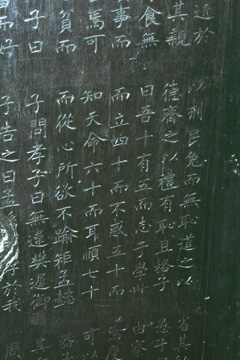 近於
其親
食無
事而
焉可
貧而
子曰
而好
以刑民免而無恥道之以
德齊之以禮有恥且格子
曰吾十有五而志于學卅
而立四十而不惑五十而
知天命六十而耳順七十
而從心所欲不踰矩孟懿
子問孝子曰無違樊遲御
子告之曰孟於我
省其
可以
其